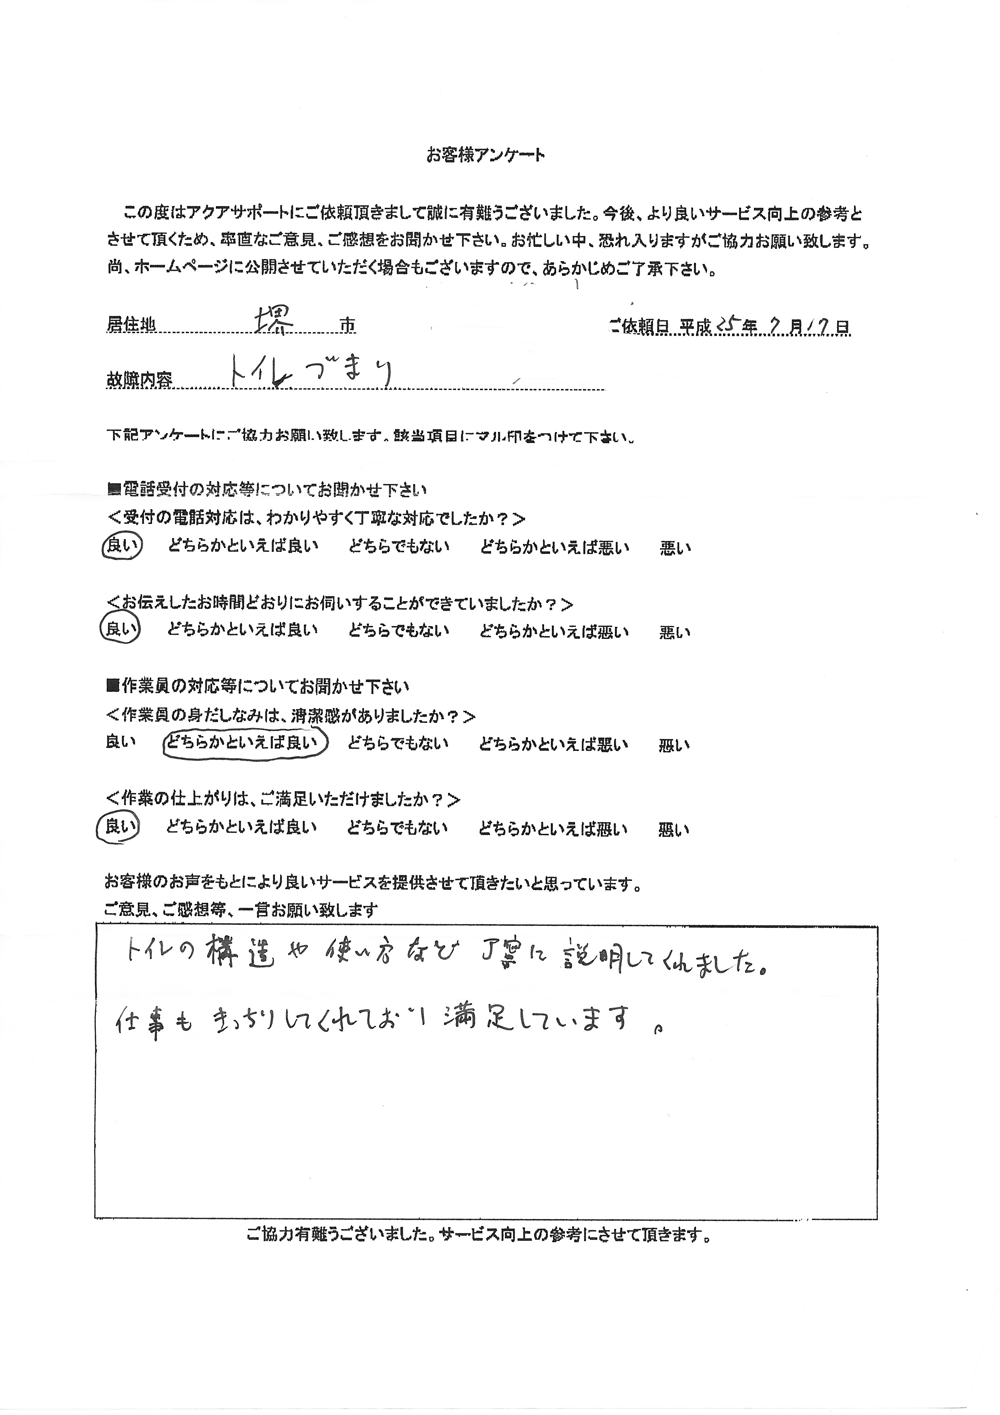 お客様アンケート
この度はアクアサポートにご依頼頂きまして誠に有難うございました。今後、より良いサービス向上の参考と
させて頂くため、率直なご意見、ご感想をお聞かせ下さい。お忙しい中、恐れ入りますがご協力お願い致します。
尚、ホームページに公開させていただく場合もございますので、あらかじめご了承下さい。
居住地 堺 市 ご依頼日 平成25年7月17日
故障内容 トイレづまり
下記アンケートにご協力お願い致します。該当項目にマル印をつけて下さい。
■電話受付の対応等についてお聞かせ下さい
<受付の電話対応は、わかりやすく丁寧な対応でしたか?>
良い どちらかといえば良い どちらでもない どちらかといえば悪い 悪い
<お伝えしたお時間どおりにお伺いすることができていましたか?>
良い どちらかといえば良い どちらでもない どちらかといえば悪い 悪い
■作業員の対応等についてお聞かせ下さい
<作業員の身だしなみは、清潔感がありましたか?>
良い どちらかといえば良い どちらでもない どちらかといえば悪い 悪い
<作業の仕上がりは、ご満足いただけましたか?>
良い どちらかといえば良い どちらでもない どちらかといえば悪い 悪い
お客様のお声をもとにより良いサービスを提供させて頂きたいと思っています。
ご意見、ご感想等、一言お願い致します
トイレの構造や使い方など丁寧に説明してくれました。
仕事もきっちりしてくれており満足しています。
ご協力有難うございました。サービス向上の参考にさせて頂きます。